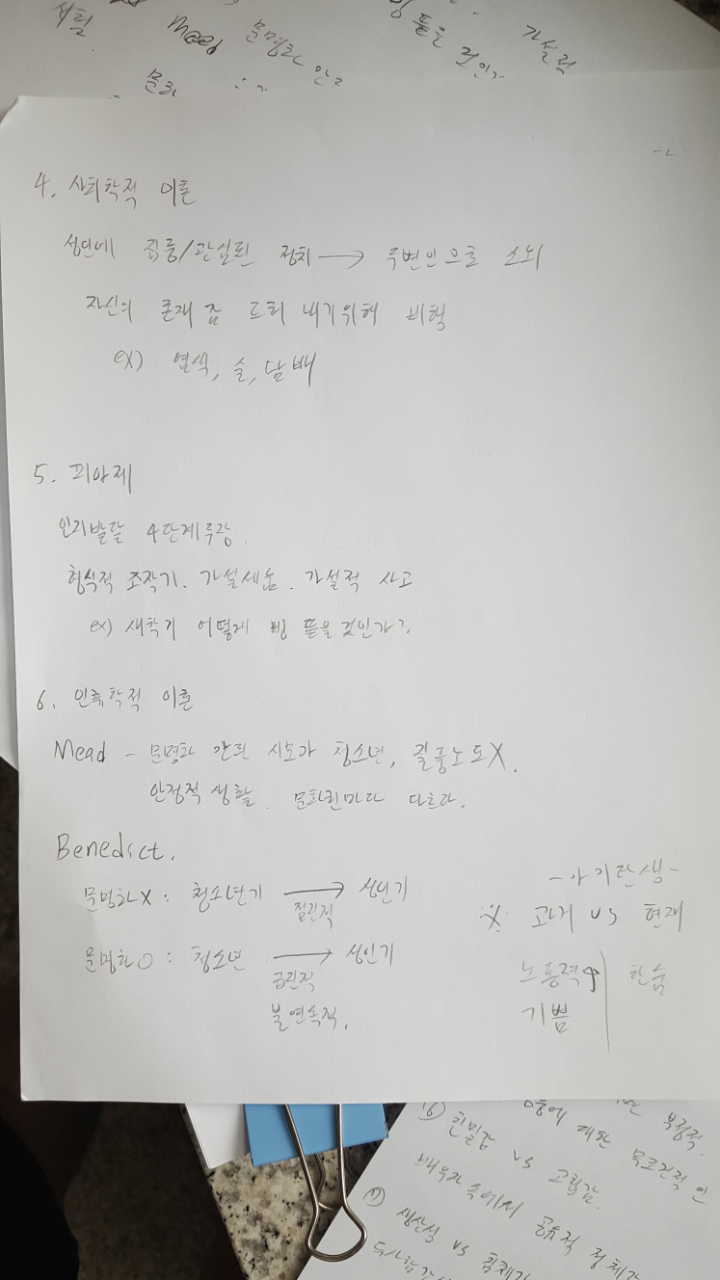 Mead 문명화 안
뜻을 것인가
가설적
문화
-2-
4. 사회학적 이론
성인에 집중/관심된 정치 → 주변인으로 소외
자신의 존재 좀 드러 내기위해 비행
ex) 염색, 술, 담배
5. 피아제
인지발달 4단계루강.
형식적 조작기. 가설세움. 가설적 사고
ex) 새학기 어떻게 삥 뜯을것인가?
6. 인류학적 이론
Mead - 문명화 안된 사모아 청소년, 질풍노도X.
안정적 생활. 문화권마다 다르다.
Benedict.
문명화X : 청소년기 → 성인기
점진적
문명화O : 청소년 → 성인기
급진적
불연속적.
-아기탄생-
※ 과거 vs 현재
노동력↑ 한숨
기쁨
부정적.
에 대한 무조건적 인
⑥ 친밀감 vs 고립감.
배우자 속에서 공유적 정체감
⑦ 생산성 vs 침체